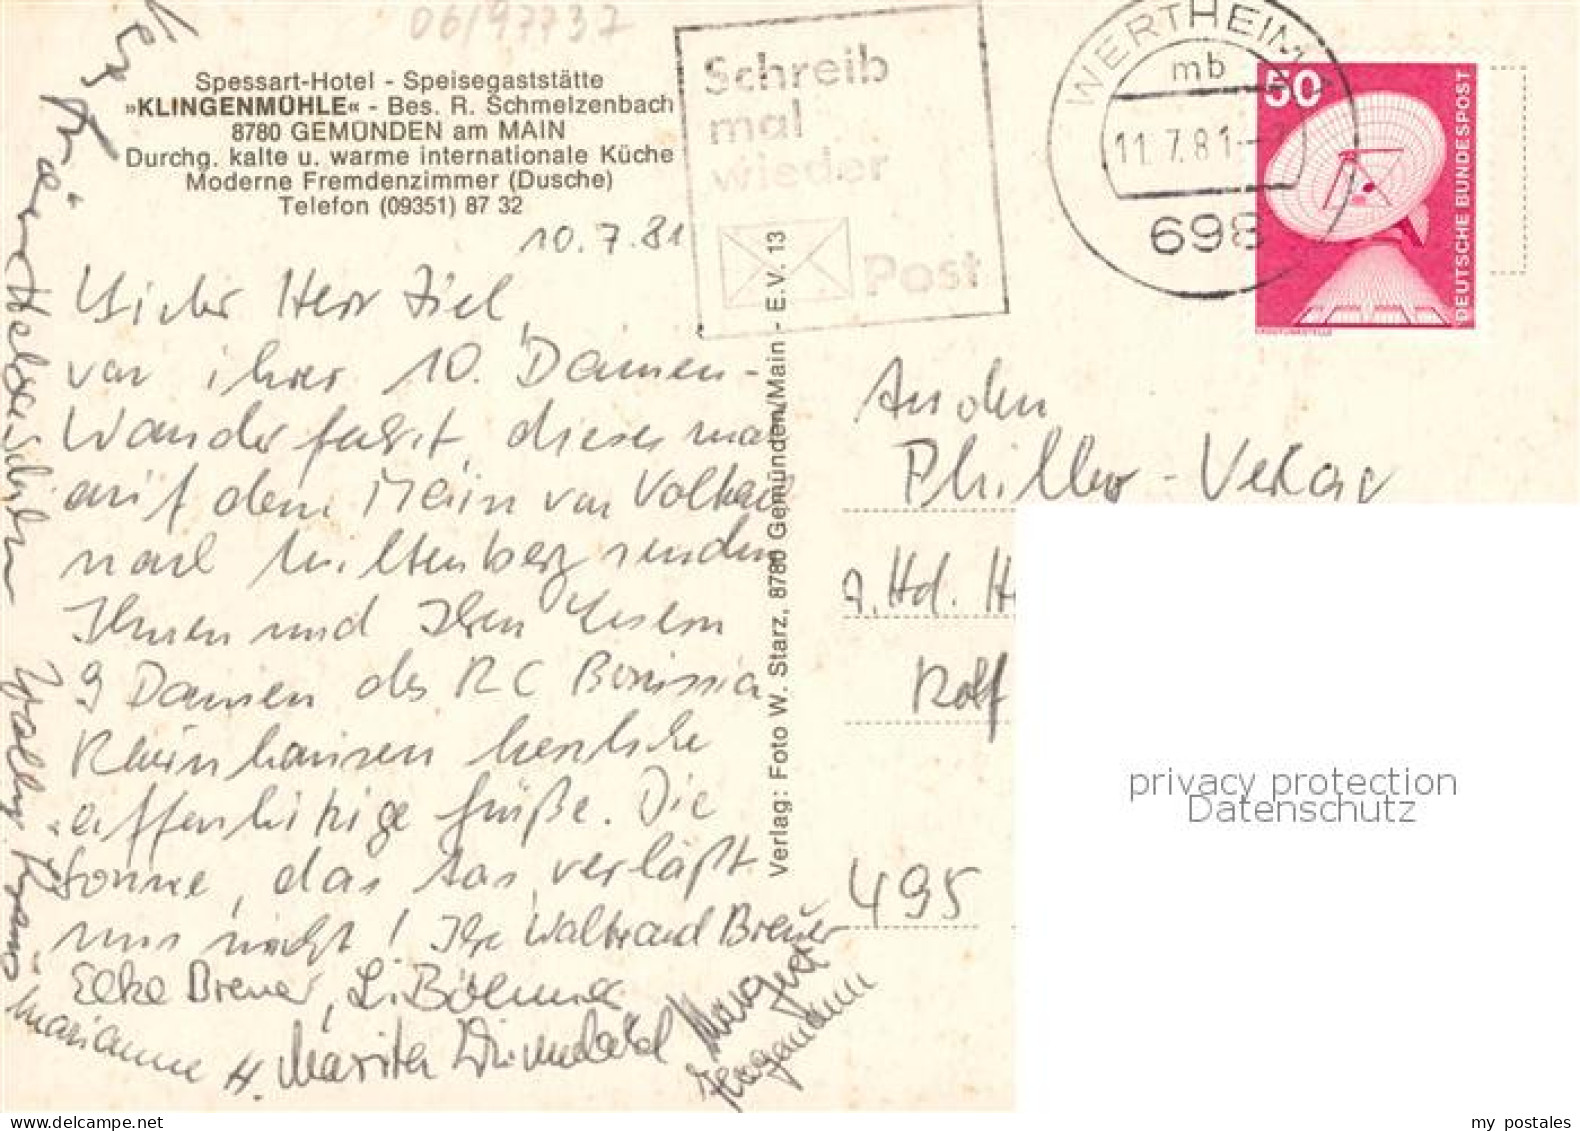 06/97737
Spessart-Hotel - Speisegaststätte
»KLINGENMÜHLE« - Bes. R. Schmelzenbach
8780 GEMÜNDEN am MAIN
Durchg. kalte u. warme internationale Küche
Moderne Fremdenzimmer (Dusche)
Telefon (09351) 87 32
Schreib
mal
wieder
Post
WERTHEIM
mb
11.7.81
698
50
DEUTSCHE BUNDESPOST
10.7.81
Lieber Herr Ziel,
von ihrer 10. Damen-
Wanderfahrt, dieses mal
auf dem Main von Volkach
nach Miltenberg senden
Ihnen und Ihren Lesern
9 Damen des RC Borussia
herzliche
Grüße. Die
Sonne, das Aas, verläßt
uns nicht! Ihre Waltraud Breuer
Elke Breuer, L. Böhmer
Marianne H. Marita
Margret
Verlag: Foto W. Starz, 8780 Gemünden/Main - E.V. 13
An den
Philler-Verlag
z. Hd. H
Rolf
495
privacy protection
Datenschutz
my postales
www.delcampe.net